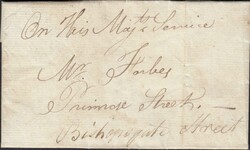 On His Maj.s Service
Mr. Forbes
Primrose Street. —
Bishopsgate Street